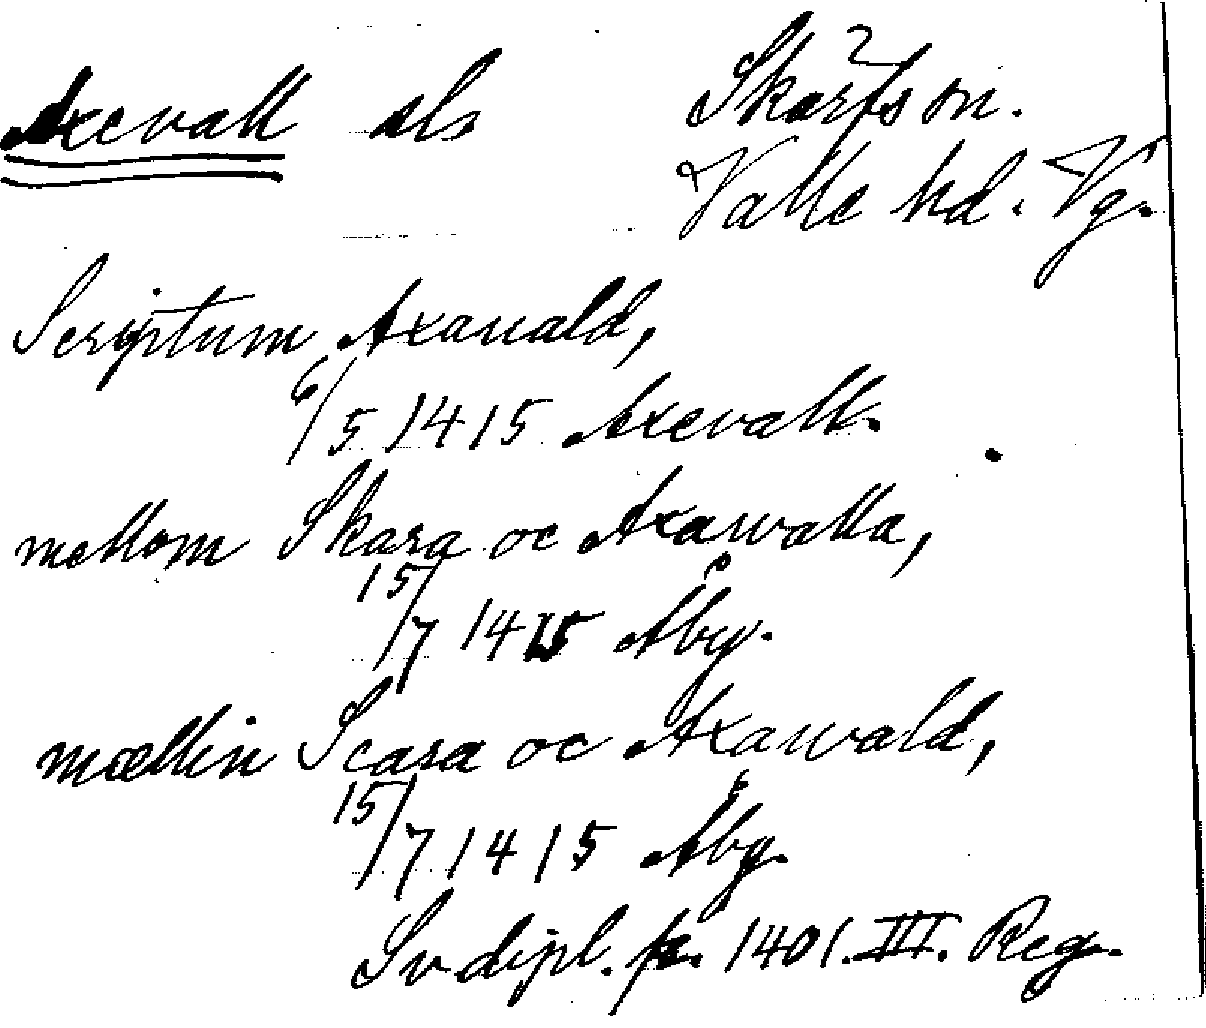 Axevall sls Skärfs sn.
Valle hd. Vg.
Scriptum Axauald,
6/5 1415 Axevall.
mellom Skara oc Axawalla,
15/7 1415 Åby.
mællin Scara oc Axawald,
15/7 1415 Åby.
Sv. dipl. fr. 1401. III. Reg.